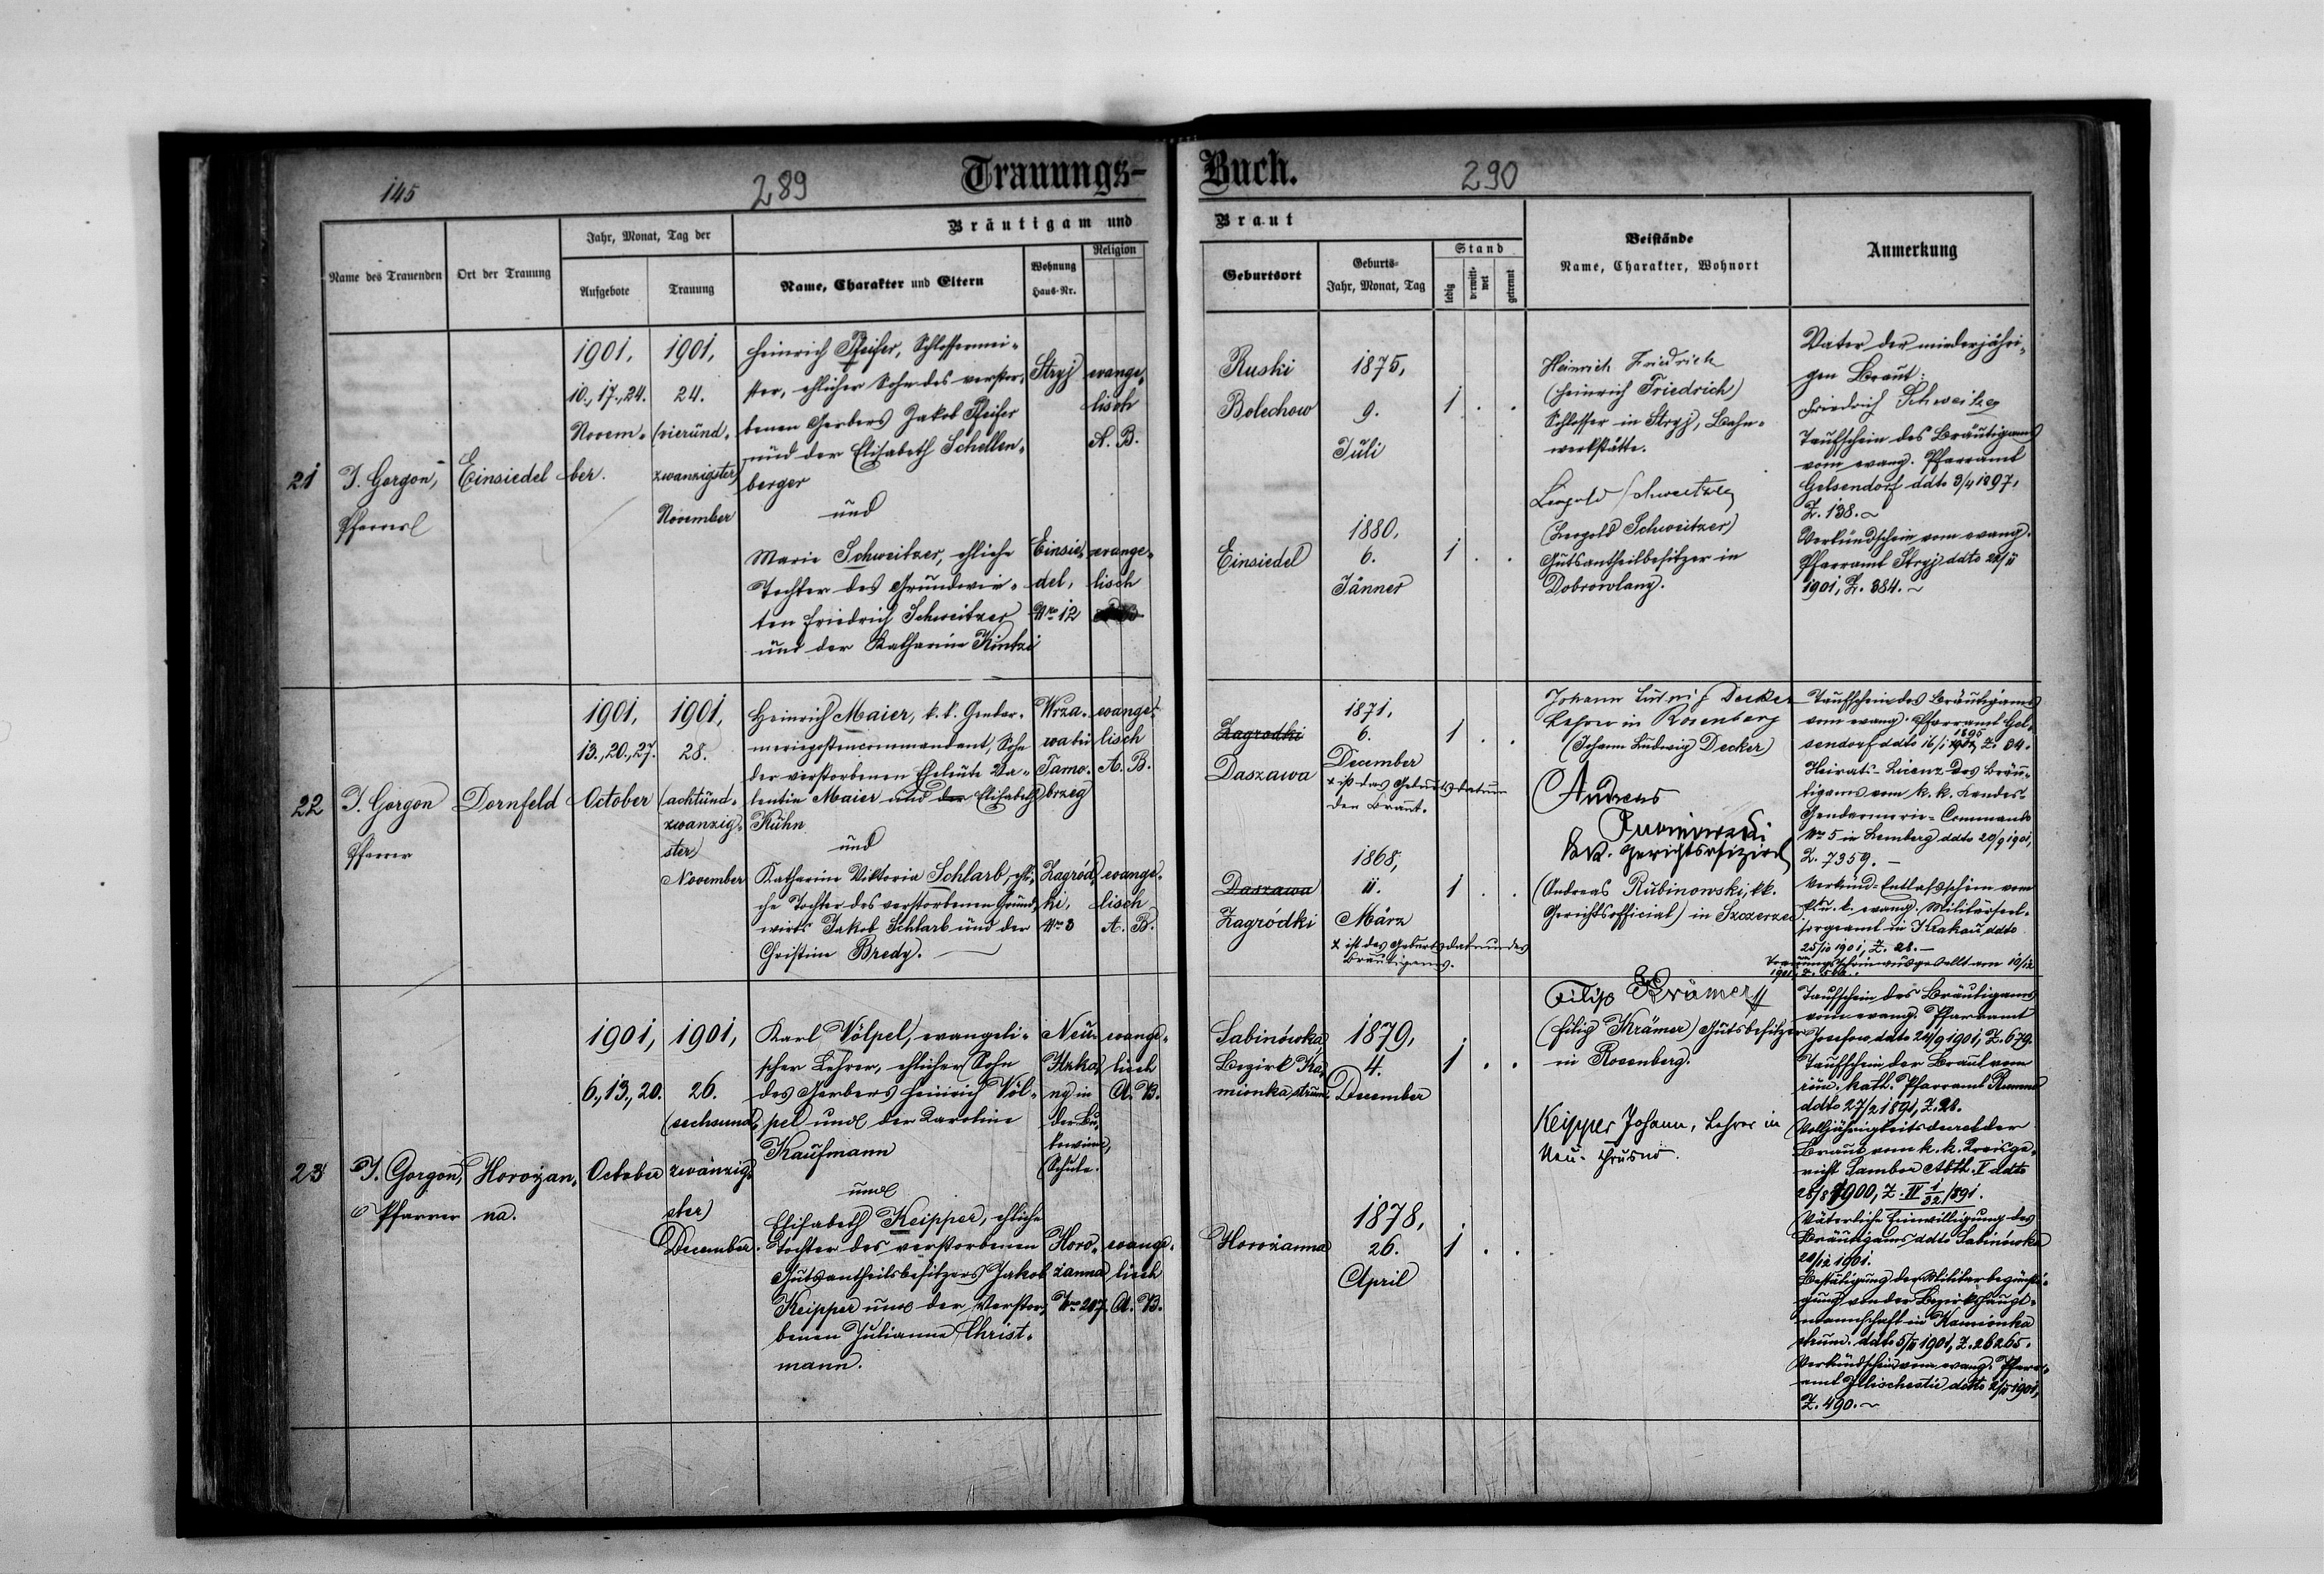 145
289
Trauungs-
Buch.
290
Bräutigam und
Braut
Name des Trauenden
Ort der Trauung
Jahr, Monat, Tag der
Aufgebote
Trauung
Name, Charakter und Eltern
Wohnung
Haus-Nr.
Religion
Geburtsort
Geburts-
Jahr, Monat, Tag
Stand
ledig
verwitt-
wet
getrennt
Beistände
Name, Charakter, Wohnort
Anmerkung
21
J. Gorgon,
Pfarrer
Einsiedel
1901,
10., 17., 24.
Novem-
ber.
1901,
24.
(vierund-
zwanzigster)
November
Heinrich Pfeifer, Schlossermei-
ster, ehlicher Sohn des verstor-
benen Gerbers Jakob Pfeifer
und der Elisabeth Schellen-
berger
und
Marie Schweitzer, ehliche
Tochter des Grundwir-
ten Friedrich Schweitzer
und der Katharina Kintzi
Stryj
Einsie-
del,
Nro 12
evange-
lisch
A. B.
evange-
lisch
Ruski
Bolechow
Einsiedel
1875,
9.
Juli
1880,
6.
Jänner
1 . .
1 . .
Heinrich Friedrich
(Heinrich Friedrich)
Schlosser in Stryj, Bahn-
werkstätte.
Leopold Schweitzer
(Leopold Schweitzer)
Gutsantheilbesitzer in
Dobrowlany.
Vater der minderjähri-
gen Braut:
Friedrich Schweitzer
Taufschein des Bräutigams
vom evang. Pfarramt
Gelsendorf ddto 3/4 1897,
Z. 138.
Verkündschein vom evang.
Pfarramt Stryj ddto 24/11
1901, Z. 384.
22
J. Gorgon
Pfarrer
Dornfeld
1901,
13., 20., 27.
October
1901,
28.
(achtund-
zwanzig-
ster)
November
Heinrich Maier, k. k. Gendar-
meriepostencommandant, Sohn
der verstorbenen Eheleute Va-
lentin Maier und der Elisabeth
Kühn
und
Katharina Viktoria Schlarb, ehli-
che Tochter des verstorbenen Grund-
wirts Jakob Schlarb und der
Christine Bredy.
Wrza-
wa bei
Tarno-
brzeg
Zagród-
ki,
Nro 3
evange-
lisch
A. B.
evange-
lisch
A. B.
Zagrodki
Daszawa
Daszawa
Zagródki
1871,
6.
December
x ist das Geburtsdatum
der Braut.
1868,
11.
März
x ist das Geburtsdatum des
Bräutigams.
1 . .
1 . .
Johann Ludwig Decker
Lehrer in Rosenberg
(Johann Ludwig Decker)
Andreas
Rubinowski
k. k. Gerichtsofficial
(Andreas Rubinowski, kk.
Gerichtsofficial) in Szczerzec
Taufschein des Bräutigams
vom evang. Pfarramt Gel-
sendorf ddto 16/1 1895, Z. 34.
Heirats-Licenz des Bräu-
tigams vom k. k. Landes-
Gendarmerie-Commando
Nro 5 in Lemberg ddto 20/9 1901,
Z. 7359.
Verkünd-Entlaßschein vom
k. u. k. evang. Militärseel-
sorgeamt in Krakau ddto
25/10 1901, Z. 28.
Trauungsschein ausgestellt am 10/12
1901
23
J. Gorgon,
Pfarrer
Horożan-
na.
1901,
6., 13., 20.
October
1901,
26.
(sechsund-
zwanzig-
ster)
December.
Karl Völpel, evangeli-
scher Lehrer, ehlicher Sohn
des Gerbers Heinrich Völ-
pel und der Karoline
Kaufmann
und
Elisabeth Keipper, ehliche
Tochter des verstorbenen
Gutsantheilsbesitzers Jakob
Keipper und der verstor-
benen Julianna Christ-
mann.
Neu-
Itzka-
ny in
der Bu-
kowina,
Schule.
Horo-
żanna
Nro 207
evange-
lisch
A. B.
evange-
lisch
A. B.
Sabinówka
Bezirk Ka-
mionka strum.
Horożanna
1879,
4.
December
1878,
26.
April
1 . .
1 . .
Filip Krämer
(Filip Krämer) Gutsbesitzer
in Rosenberg.
Keipper Johann, Lehrer in
Neu-Chrusno.
Taufschein des Bräutigams
vom evang. Pfarramt
Josefow ddto 24/9 1901, Z. 679.
Taufschein der Braut vom
röm. kath. Pfarramt Rumno
ddto 27/2 1891, Z. 28.
Volljährigkeitsdecret der
Braut vom k. k. Kreisge-
richt Sambor Abth. V ddto
28/8 1900, Z. IV 1/32/891.
Väterliche Einwilligung des
Bräutigams ddto Sabinówka
20/12 1901.
Bestätigung der Militärbegünsti-
gung von der Bezirkshaupt-
mannschaft in Kamionka
strum. ddto 5/11 1901, Z. 26265.
Verkündschein vom evang. Pfarr-
amt Illischestie ddto 2/11 1901,
Z. 490.